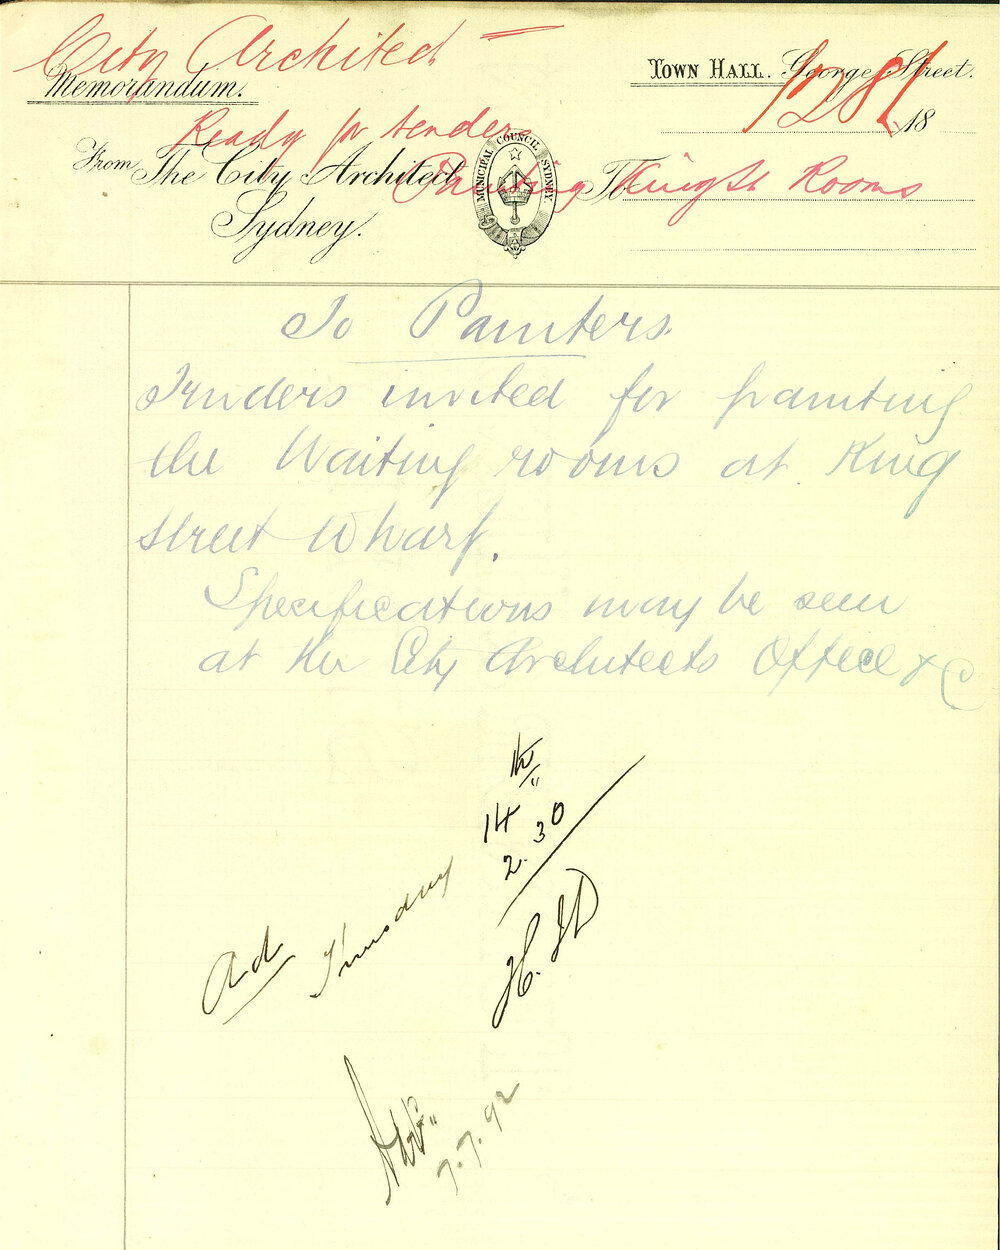 City Architect
Memorandum.
Town Hall. George Street.
1281
18
Ready for tenders
From The City Architect
Sydney.
MUNICIPAL COUNCIL SYDNEY
To
Painting King St Rooms
To Painters
Tenders invited for painting
the Waiting rooms at King
Street Wharf.
Specifications may be seen
at the City Architects Office &c
Ad Thursday 14th
2.30
7.7.92